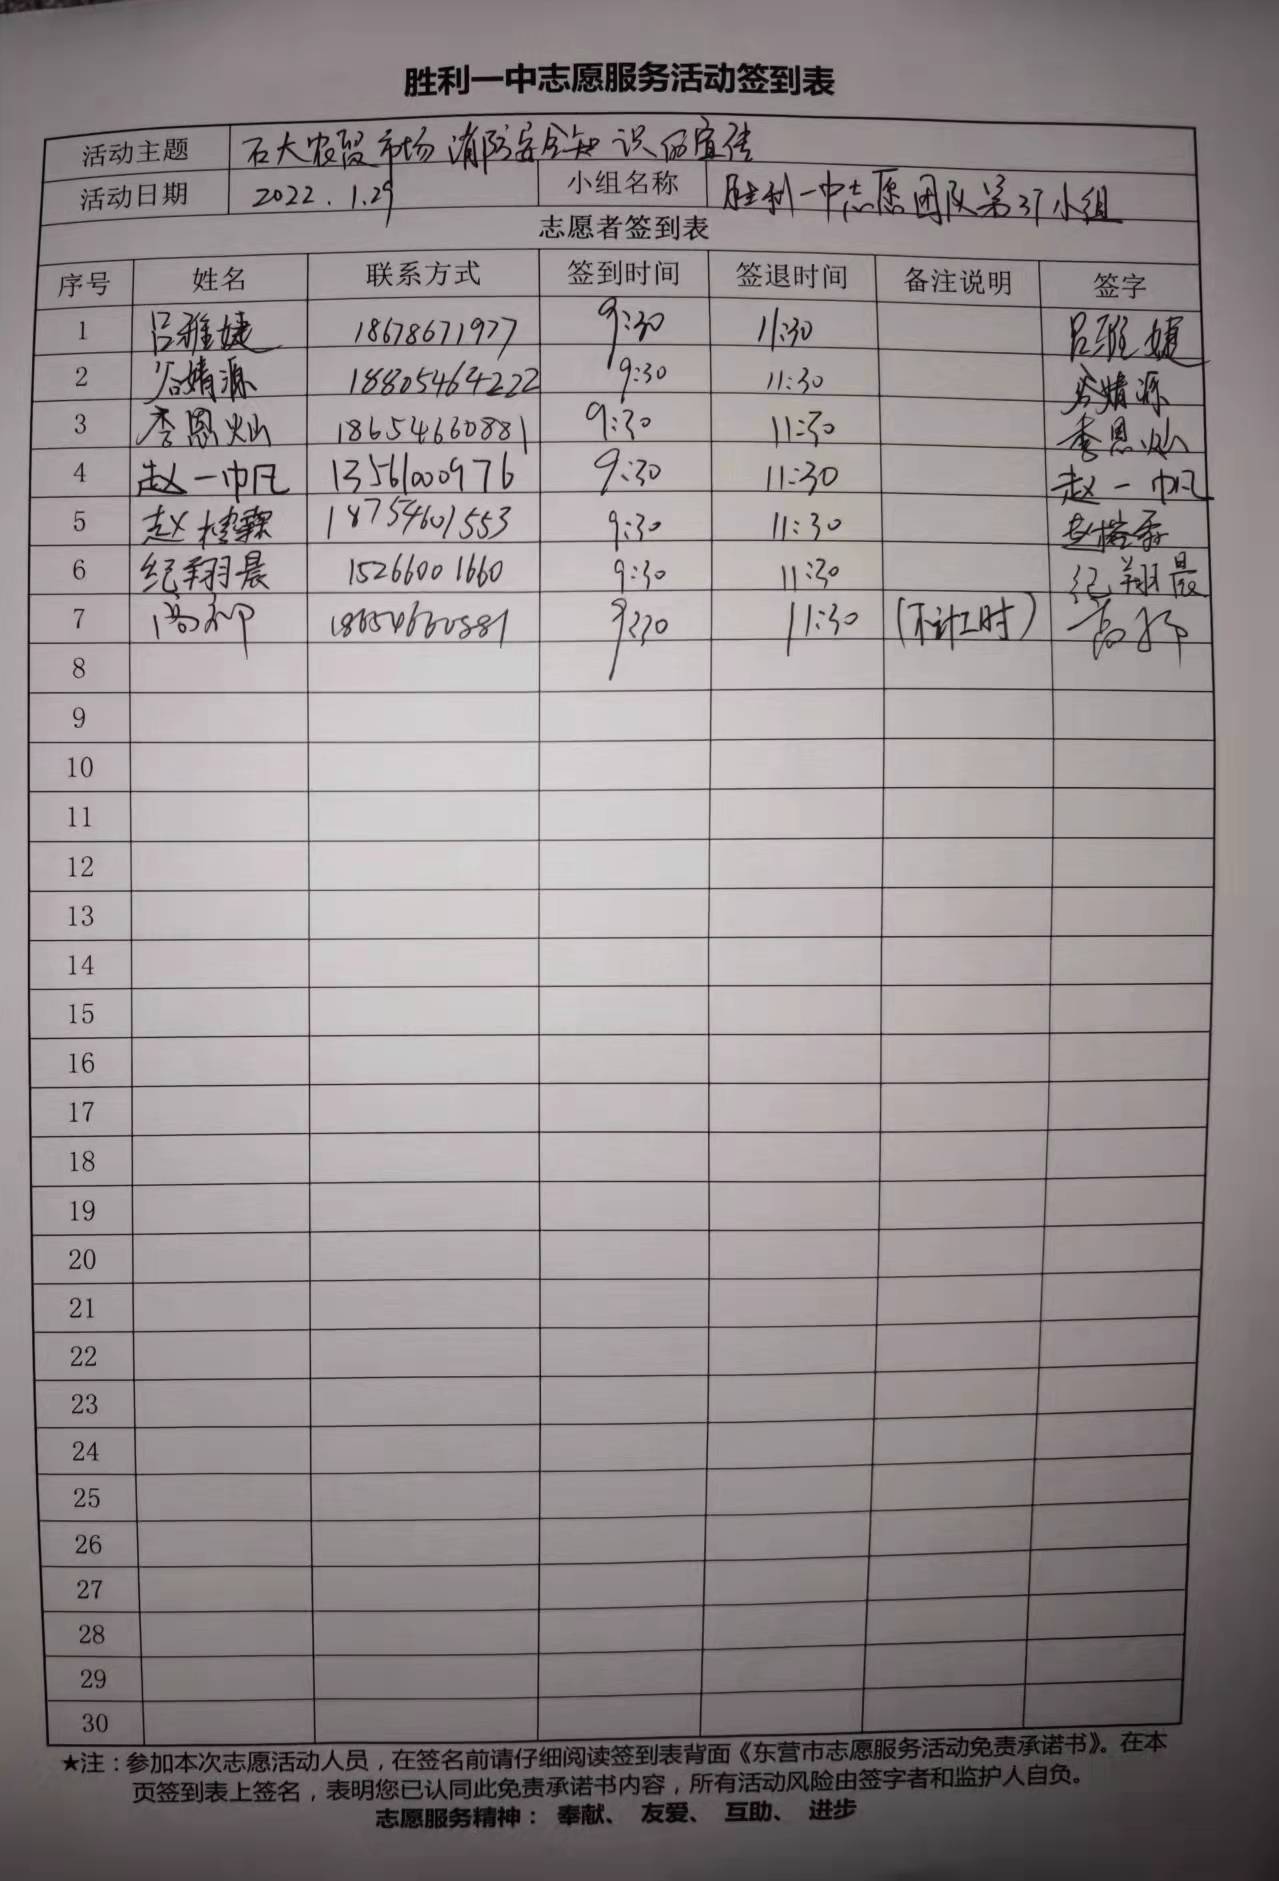 胜利一中志愿服务活动签到表
活动主题 石大农贸市场消防安全知识的宣传
活动日期 2022.1.29 小组名称 胜利一中志愿团队第37小组
志愿者签到表
序号 姓名 联系方式 签到时间 签退时间 备注说明 签字
1 吕雅婕 18678671977 9:30 11:30 吕雅婕
2 谷婧源 18805464222 9:30 11:30 谷婧源
3 李恩灿 18654660881 9:30 11:30 李恩灿
4 赵一帆 13561000976 9:30 11:30 赵一帆
5 赵 18754601553 9:30 11:30 赵
6 纪翔晨 15266001660 9:30 11:30 纪翔晨
7 高 18654660881 9:30 11:30 (不计工时) 高
8
9
10
11
12
13
14
15
16
17
18
19
20
21
22
23
24
25
26
27
28
29
30
★注：参加本次志愿活动人员，在签名前请仔细阅读签到表背面《东营市志愿服务活动免责承诺书》。在本
页签到表上签名，表明您已认同此免责承诺书内容，所有活动风险由签字者和监护人自负。
志愿服务精神： 奉献、 友爱、 互助、 进步